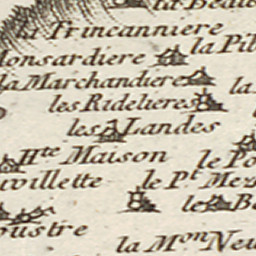 la Beau
la Trincanniere
la Pil
onsardiere
la Marchandiere
la
les Ridelieres
les Landes
Hte Maison
le Po
villette
le Pt Me
le Be
oustre
la Mon Neu